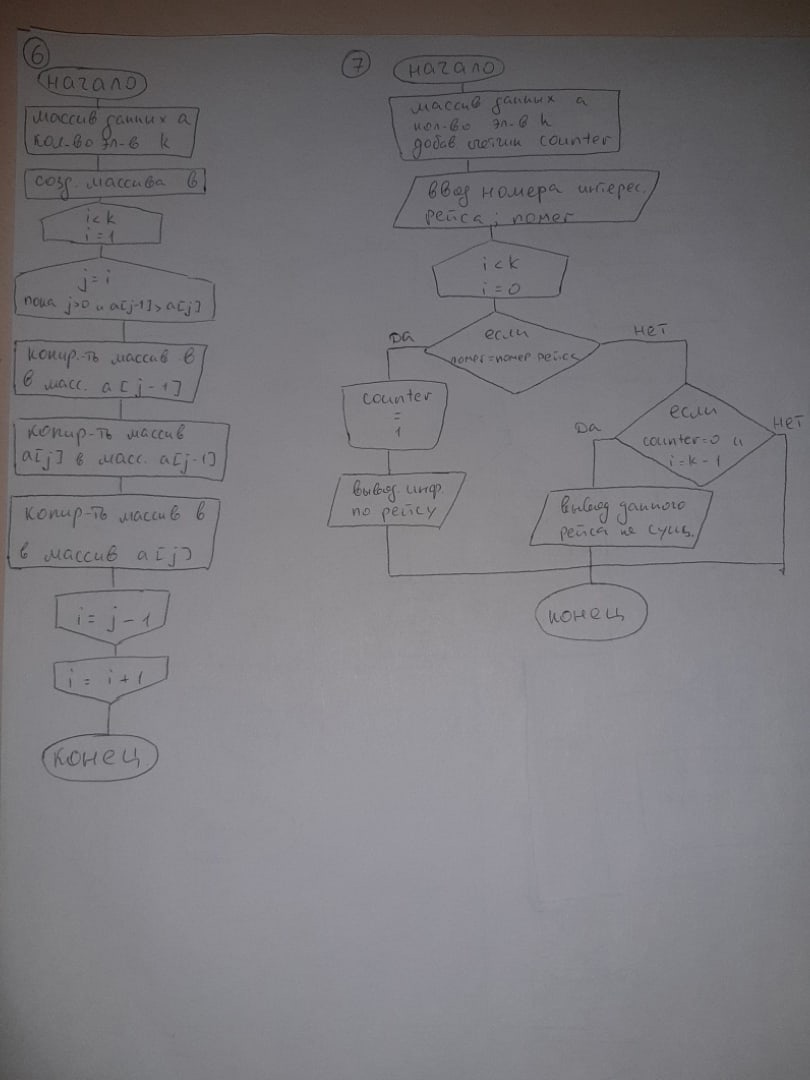 6
начало
массив данных а
кол-во эл-в k
созд. массива в
i<k
i=1
j=i
пока j>0 и a[j-1]>a[j]
копир-ть массив в
в масс. a[j-1]
копир-ть массив
a[j] в масс. a[j-1]
копир-ть массив в
в массив a[j]
i = j-1
i = i+1
конец
7
начало
массив данных а
кол-во эл-в k
добав счётчик counter
ввод номера интерес.
рейса; nomer
i<k
i=0
если
nomer=номер рейса
да
нет
counter
=
1
вывод. инф.
по рейсу
если
counter=0 и
i=k-1
да
нет
вывод данного
рейса не сущ.
конец